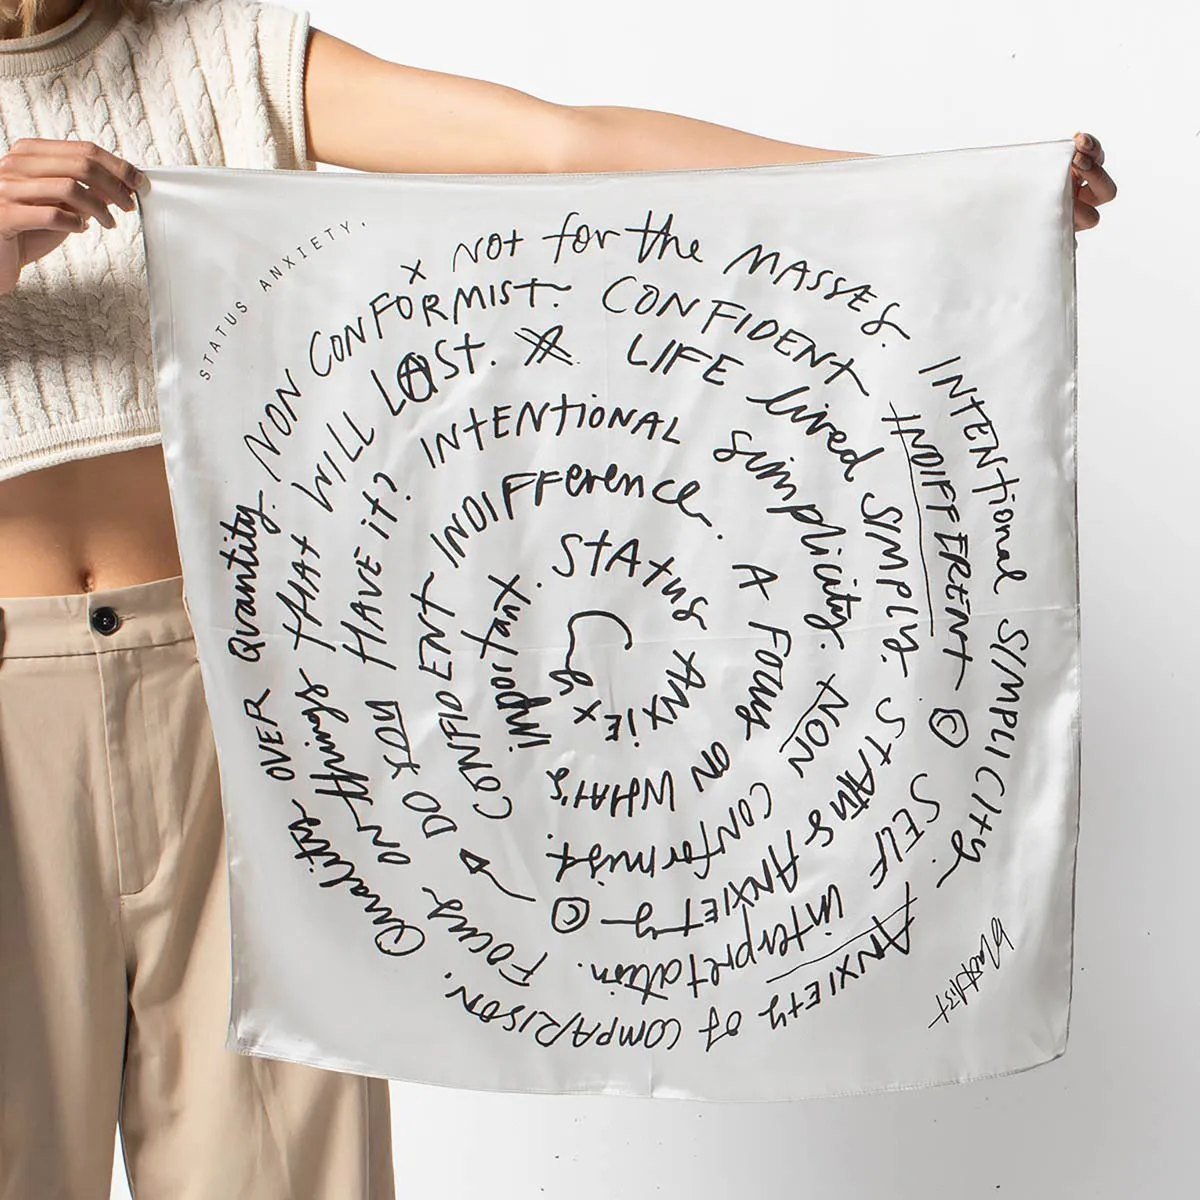 STATUS ANXIETY.
x NOT for the MASSES. INTENTIONAL SIMPLICITY.
ANXIETY of COMPARISON. Quality OVER Quantity.
NON CONFORMIST. CONFIDENT INDIFFERENT © SELF interpretation.
FOCUS ON things THAT WILL LAST.
LIFE lived SIMPLY. STATUS ANXIETY ©
DO YOU HAVE it? INTENTIONAL simplicity. NON conformist.
CONFIDENT INDIFFERENCE. A FOCUS ON WHAT'S important.
STATUS ANXIE x
blacklist